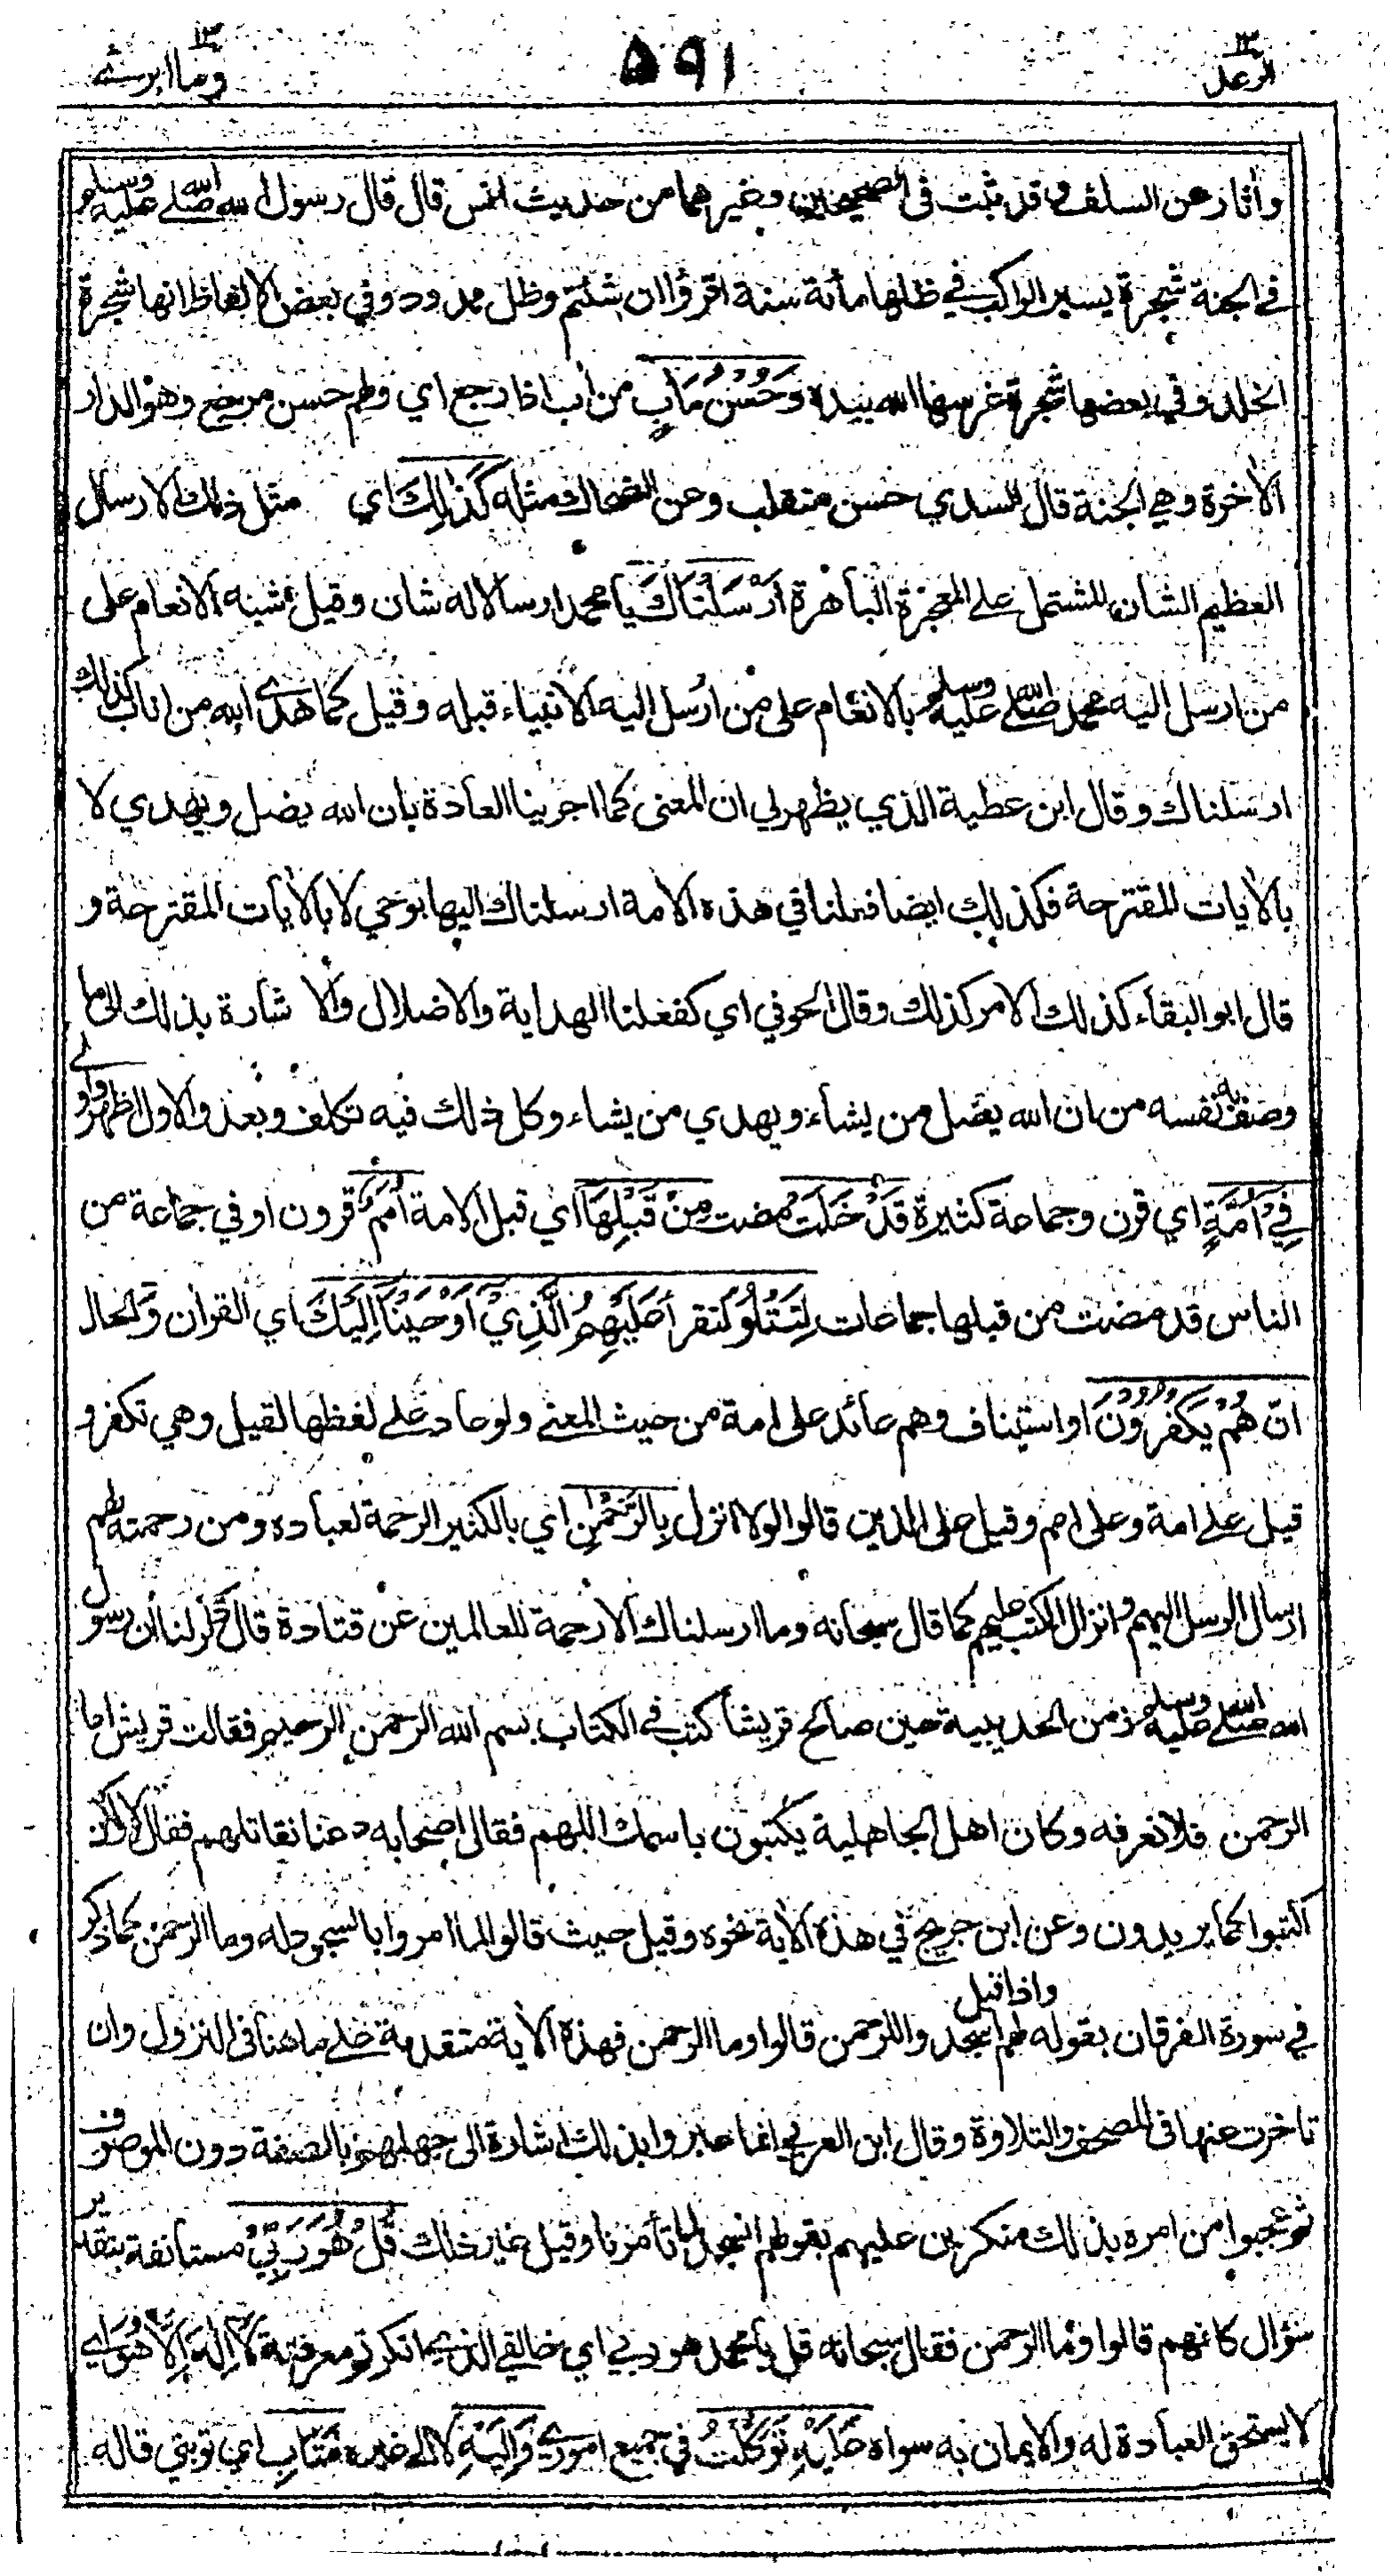 ١٣ الرعد
٥٩١
١٣ وما ابرئ
واثار عن السلف وقد ثبت فى الصحيحين وغيرهما من حديث انس قال قال رسول الله صلى الله عليه وسلم
في الجنة شجرة يسير الراكب في ظلها مأئة سنة اقرؤا ان شئتم وظل ممدود وفي بعض الالفاظ انها شجرة
الخلد وفي بعضها شجرة غرسها الله بيده وَحُسْنُ مَاٰبٍ من اٰب اذا رجع اي ولهم حسن مرجع وهو الدار
الاٰخرة وهي الجنة قال السدي حسن منقلب وعن الضحاك مثله كَذٰلِكَ اي مثل ذلك الارسال
العظيم الشان المشتمل على المعجزة الباهرة اَرْسَلْنَاكَ يا محمد ارسالا له شان وقيل شبه الانعام على
من ارسل اليه محمد صلى الله عليه وسلم بالانعام على من ارسل اليه الانبياء قبله وقيل كما هدى الله من اناب كذلك
ارسلناك وقال ابن عطية الذي يظهر لي ان المعنى كما اجرينا العادة بان الله يضل ويهدي لا
بالاٰيات المقترحة فكذلك ايضا فعلنا في هذه الامة ارسلناك اليها بوحي لا بالاٰيات المقترحة و
قال ابو البقاء كذلك الامر كذلك وقال الحوفي اي كفعلنا الهداية والاضلال والا شارة بذلك الى ما
وصف به نفسه من ان الله يضل من يشاء ويهدي من يشاء وكل ذلك فيه تكلف وبعد والاول اظهر واولى
فِيْ اُمَّةٍ اي قرن وجماعة كثيرة قَدْ خَلَتْ مضت مِنْ قَبْلِهَا اي قبل الامة اُمَمٌ قرون او في جماعة من
الناس قد مضت من قبلها جماعات لِتَتْلُوَ لتقرأ عَلَيْهِمُ الَّذِيْ اَوْحَيْنَا اِلَيْكَ اي القراٰن وَالحال
ان هُمْ يَكْفُرُوْنَ او استيناف وهم عائد على امة من حيث المعنى ولو عاد على لفظها لقيل وهي تكفر و
قيل على امة وعلى امم وقيل على الذين قالوا لولا انزل بِالرَّحْمٰنِ اي بالكثير الرحمة لعباده ومن رحمته لهم
ارسال الرسل اليهم وانزال الكتب عليهم كما قال سبحانه وما ارسلناك الا رحمة للعالمين عن قتادة قال ذكر لنا ان رسول
الله صلى الله عليه وسلم زمن الحديبية حين صالح قريشا كتب في الكتاب بسم الله الرحمن الرحيم فقالت قريش اما
الرحمن فلا نعرفه وكان اهل الجاهلية يكتبون باسمك اللهم فقال اصحابه دعنا نقاتلهم فقال لا ولكن
اكتبوا كما يريدون وعن ابن جريج في هذه الاٰية نحوه وقيل حيث قالوا لما امروا بالسجود له وما الرحمن كما ذكر
في سورة الفرقان بقوله واذا قيل لهم اسجدوا للرحمن قالوا وما الرحمن فهذه الاٰية متقدمة على ما هنا فى النزول وان
تاخرت عنها فى المصحف والتلاوة وقال ابن العربي انما عبروا بذلك اشارة الى جهلهم بالصفة دون الموصوف
ثم عجبوا من امره بذلك منكرين عليهم بقولهم انسجد لما تأمرنا وقيل غير ذلك قُلْ هُوَ رَبِّيْ مستأنفة بتقدير
سؤال كانهم قالوا وما الرحمن فقال سبحانه قل يا محمد هو ربي اي خالقي الذي انكرتم معرفته لَا اِلٰهَ اِلَّا هُوَ اي
لا يستحق العبادة له والايمان به سواه عَلَيْهِ تَوَكَّلْتُ في جميع اموري وَاِلَيْهِ لا الى غيره مَتَابِ اي توبتي قاله